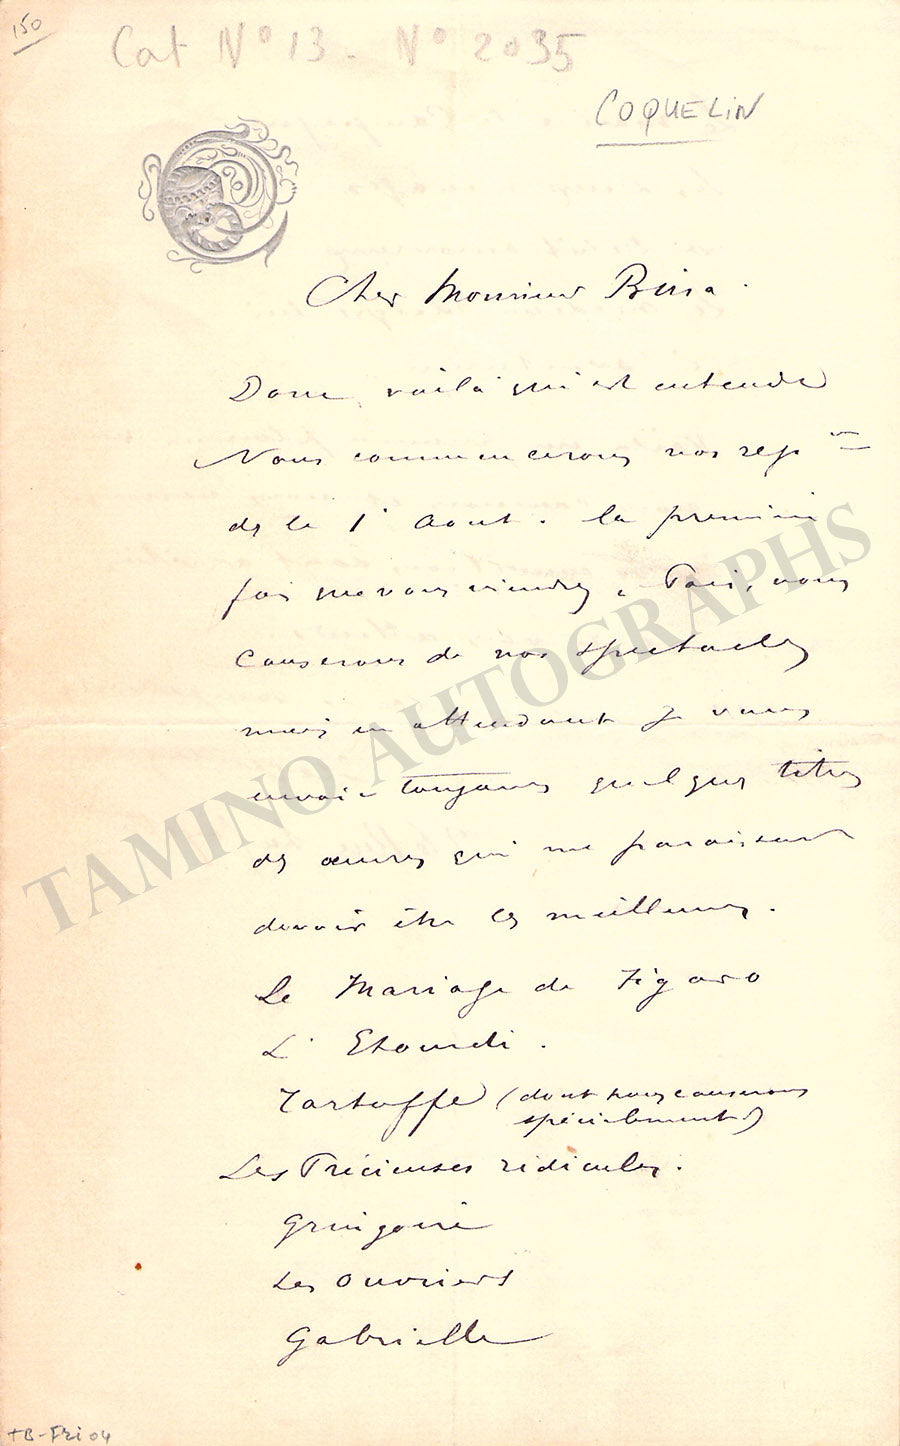 150
Cat N° 13 - N° 2035
COQUELIN
Cher Monsieur
Donc voilà qui est entendu
Nous commencerons nos repons
dès le 1er Aout. la première
fois que vous viendrez à Paris, nous
causerons de nos spectacles
mais en attendant je vous
envoie toujours quelques titres
des œuvres qui me paraissent
devoir être les meilleures.
Le Mariage de Figaro
L'Etourdi.
Tartuffe (dont nous causerons
spécialement)
Les Précieuses ridicules.
Gringoire
Les Ouvriers
Gabrielle
TAMINO AUTOGRAPHS
TB-Fri 04